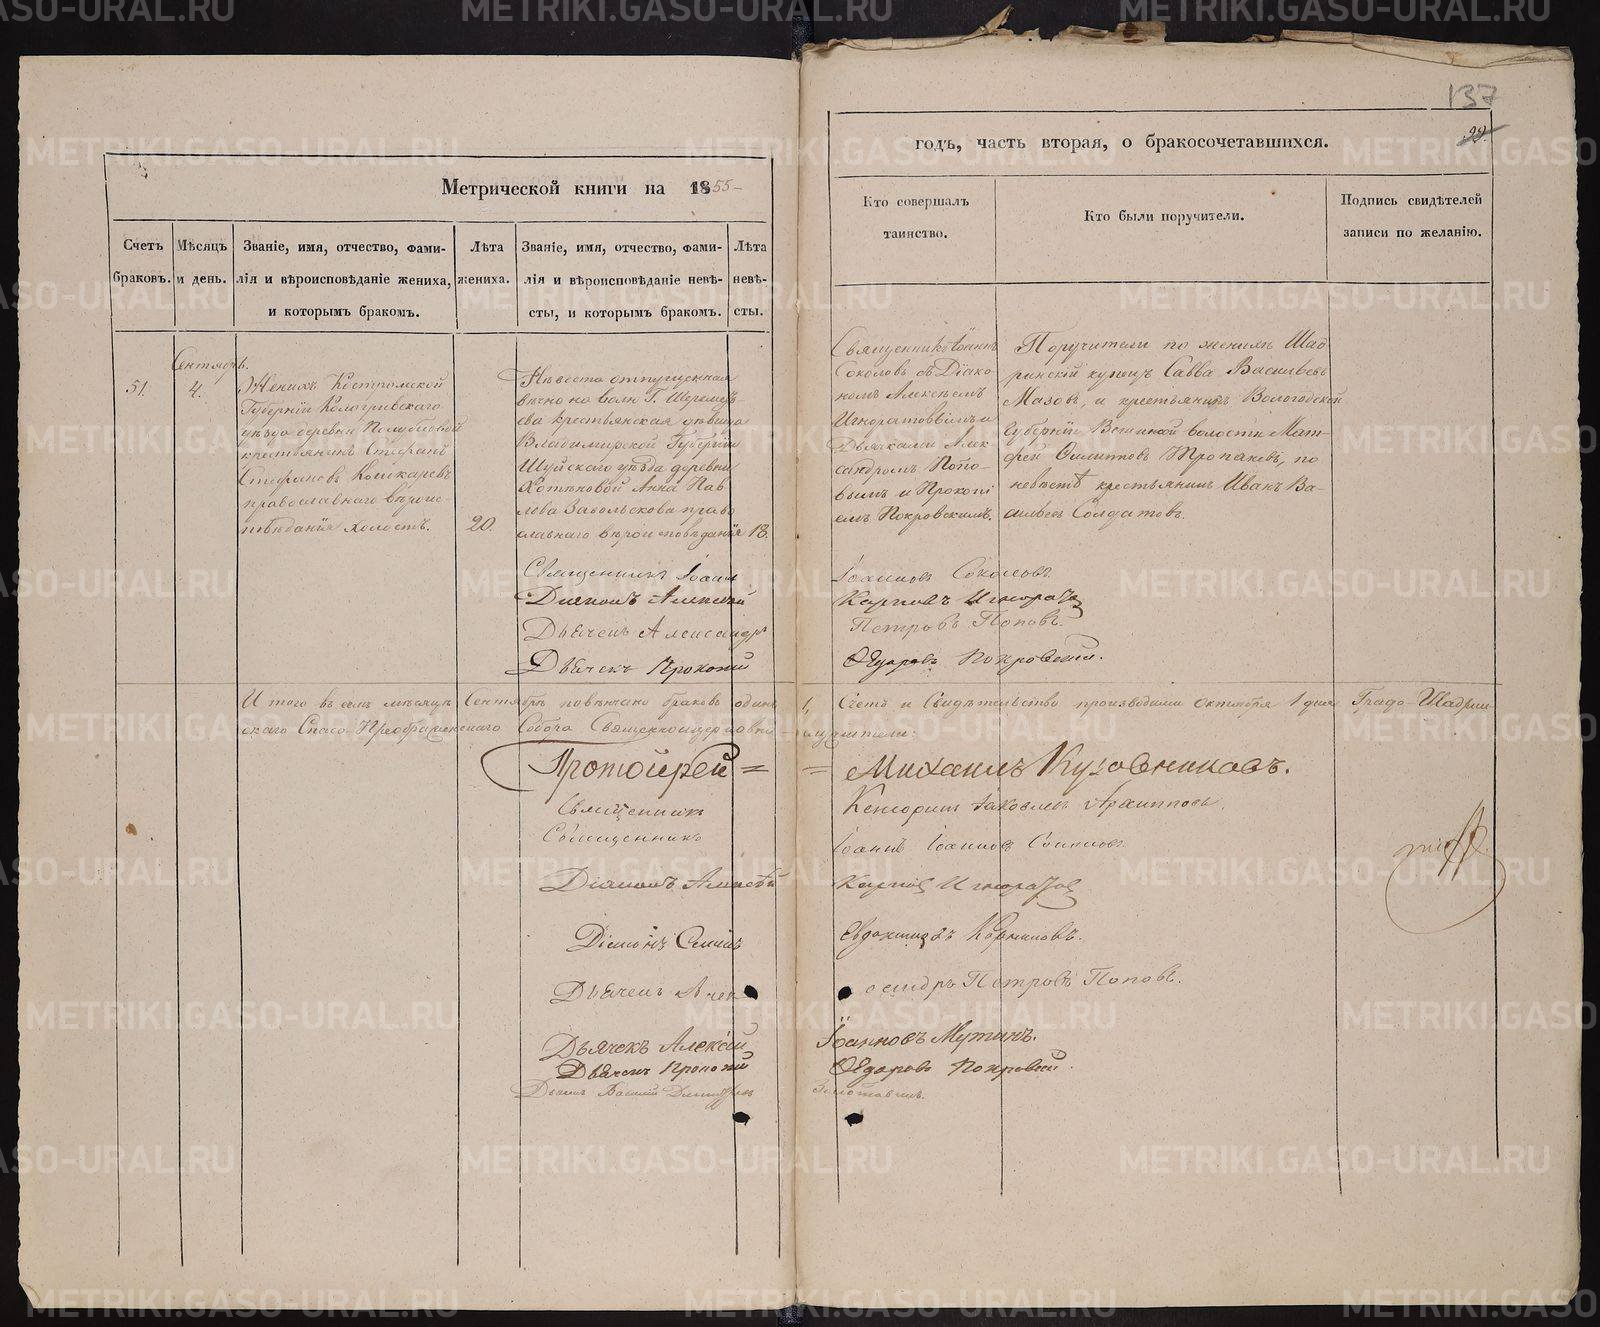 137
29.
Метрической книги на 1855
годъ, часть вторая, о бракосочетавшихся.
Счетъ браковъ.
Мѣсяцъ и день.
Званіе, имя, отчество, фами-
лія и вѣроисповѣданіе жениха,
и которымъ бракомъ.
Лѣта
жениха.
Званіе, имя, отчество, фами-
лія и вѣроисповѣданіе невѣ-
сты, и которымъ бракомъ.
Лѣта
невѣ-
сты.
Кто совершалъ
таинство.
Кто были поручители.
Подпись свидѣтелей
записи по желанію.
51.
Сентябрь.
4.
Женихъ Костромской
Губерніи Кологривскаго
уѣзда деревни
крестьянинъ Стефанъ
Стефановъ
православнаго вѣроис-
повѣданія холостъ.
20.
Невѣста отпущенная
вѣчно на волю Г. Шереметь-
ева крестьянская дѣвица
Владимирской Губерніи
Шуйскаго уѣзда деревни
Анна Пав-
лова право
славнаго вѣроисповѣданія
18.
Священникъ Іоаннъ
Соколовъ съ Діако-
номъ Алексѣемъ
Дьячками Алек-
сандромъ Попо-
вымъ и Прокопі
емъ Покровскимъ.
Поручители по женихѣ Шад-
ринскій купецъ Савва Васильевъ
Мазовъ, и крестьянинъ Вологодской
Губерніи волости Мат-
фей по
невѣстѣ крестьянинъ Иванъ Ва-
сильевъ Солдатовъ.
Священникъ Іоаннъ
Іоанновъ Соколовъ.
Діаконъ Алексѣй
Карповъ
Дьячекъ Александръ
Петровъ Поповъ.
Дьячекъ Прокопій
Ѳедоровъ Покровскій.
Итого въ семъ мѣсяцѣ Сентябрѣ повѣнчано браковъ одинъ 1, Счетъ и Свидѣтельство производили октября 1 дня Градо Шадрин
скаго Спасо Преображенскаго Собора Священноцерковно служители:
Протоіерей = = Михаилъ Кузовниковъ.
Священникъ
Іаковлевъ
Священникъ
Іоаннъ Іоанновъ Соколовъ
Діаконъ Алексѣй
Карповъ
Діаконъ
Дьячекъ Алек
сандръ Петровъ Поповъ.
Дьячекъ Алексѣй
Іоанновъ Мутинъ.
Дьячекъ Прокопій
Ѳедоровъ Покровскій.
Василій
METRIKI.GASO-URAL.RU